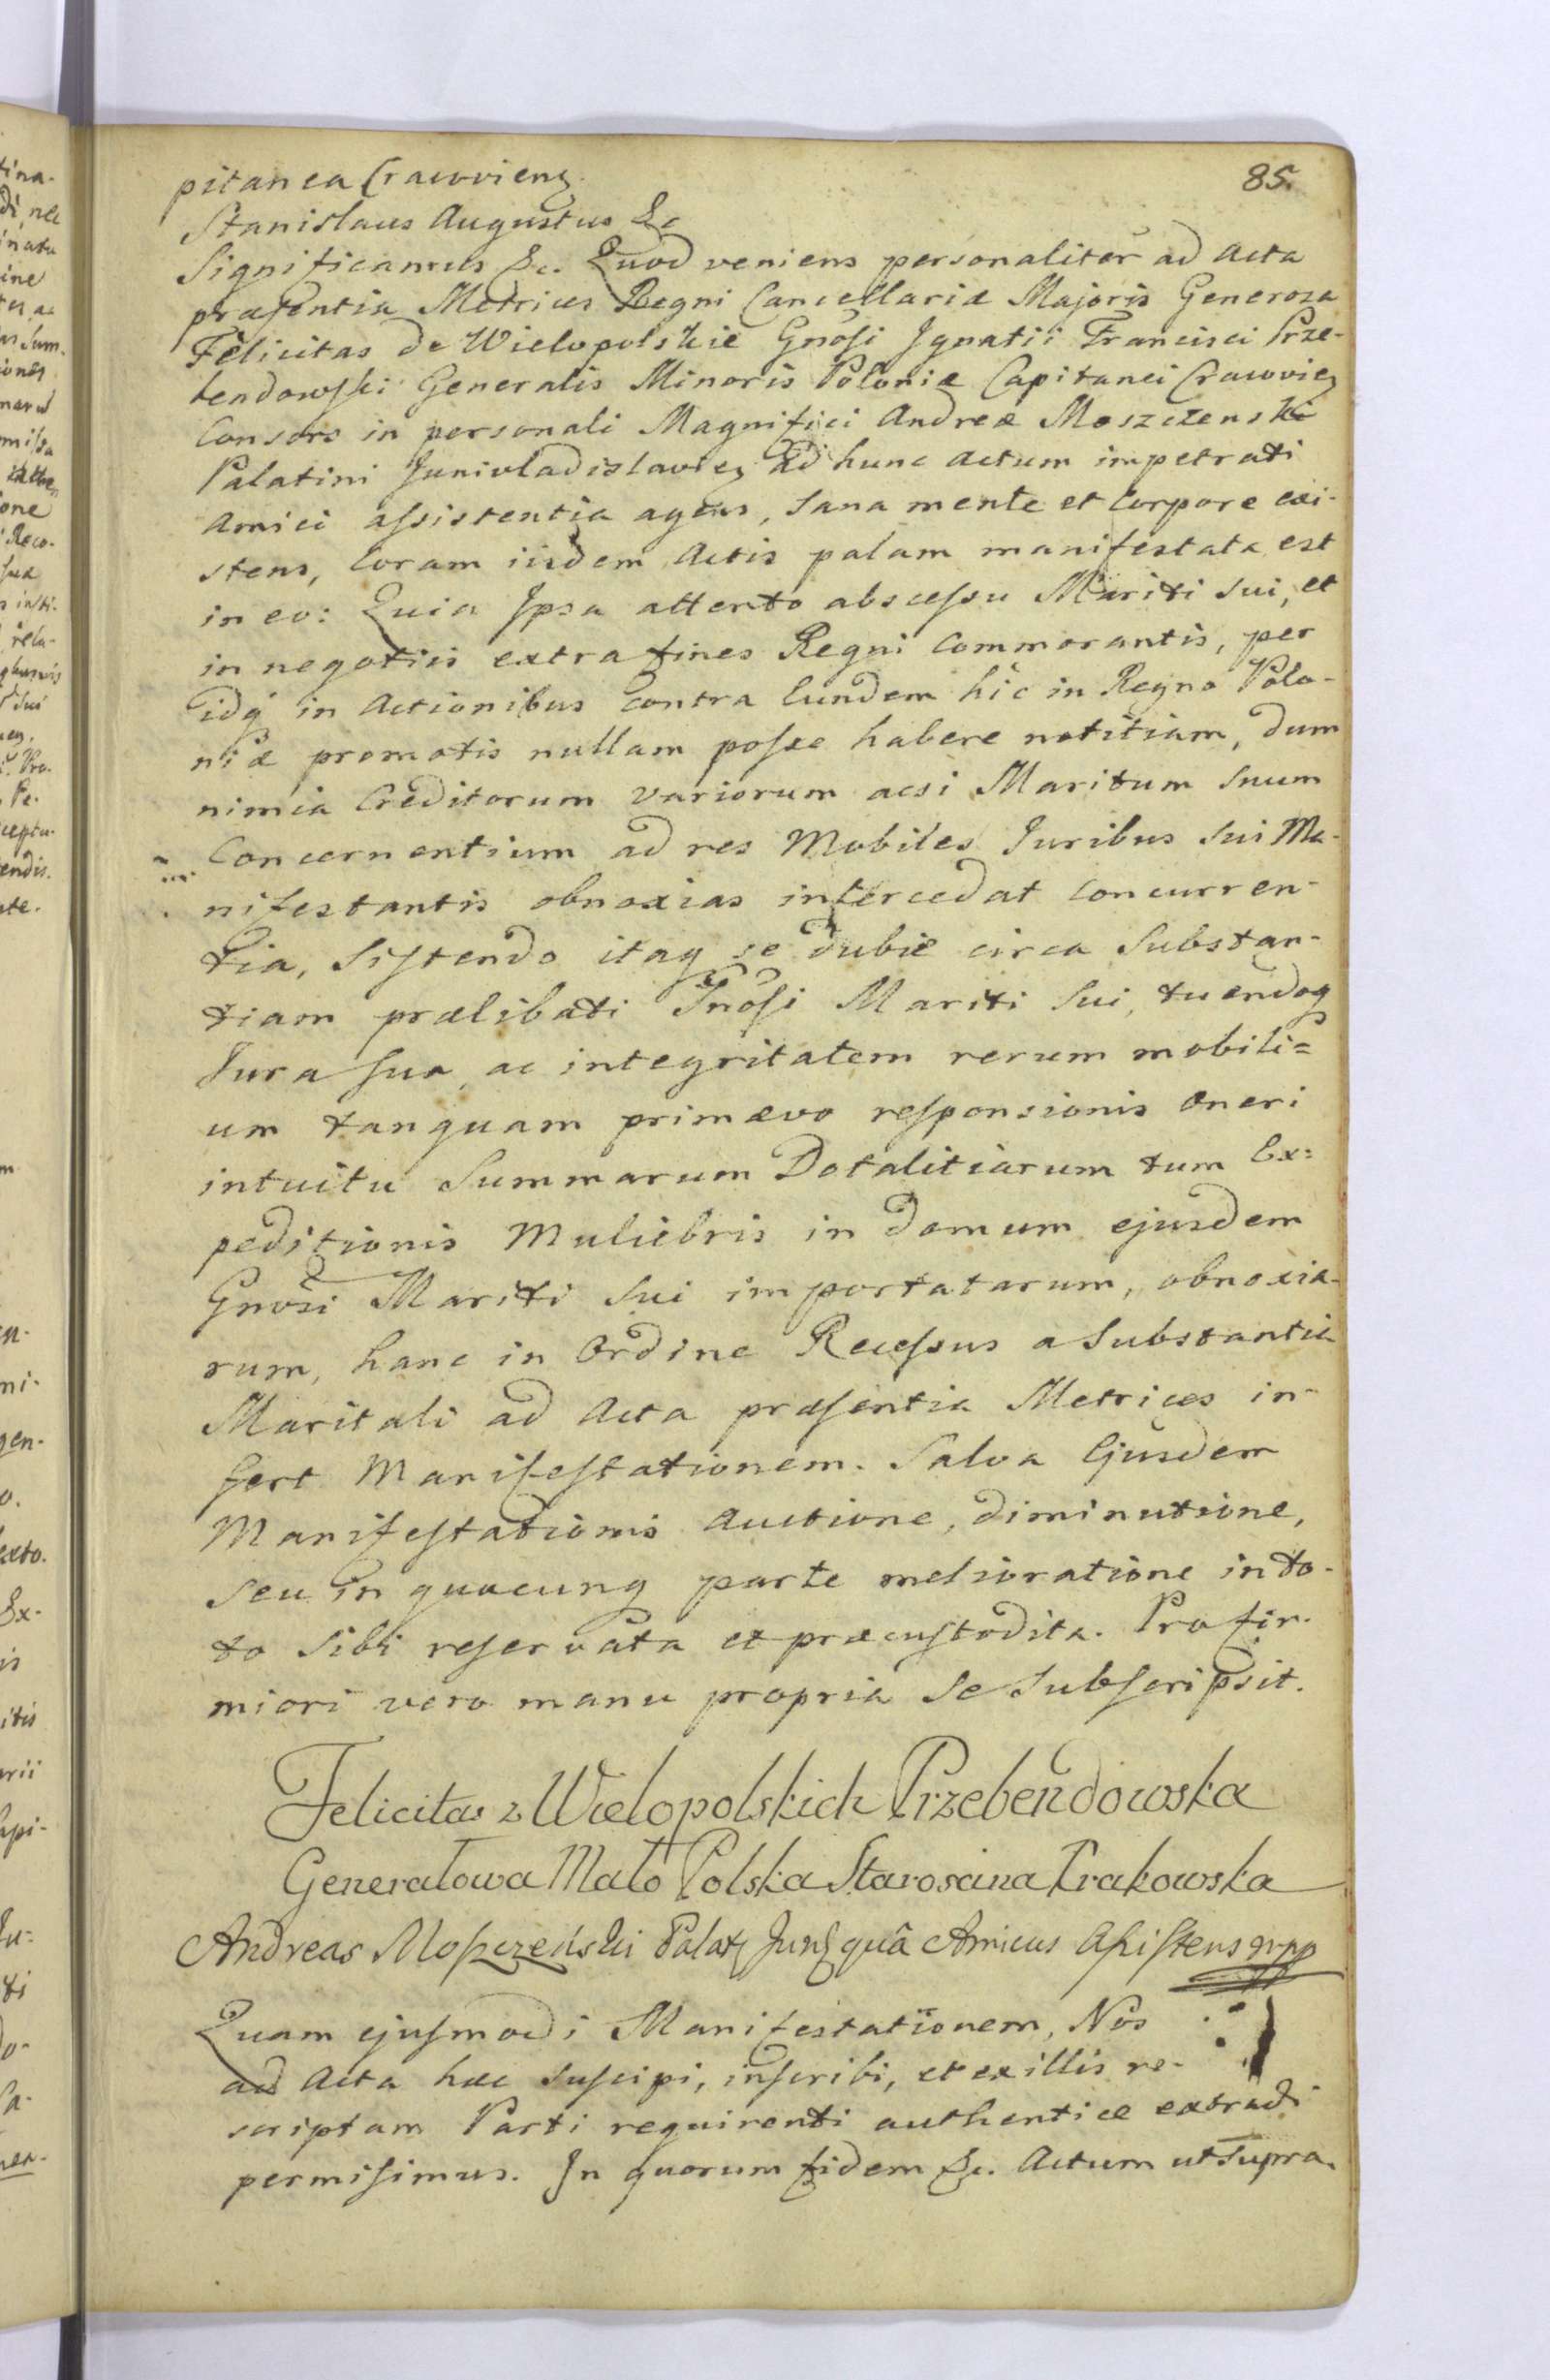 85.
pitanea Cracovien
Stanislaus Augustus &c
Significamus &c. Quod veniens personaliter ad Acta
præsentia Metrices Regni Cancellariæ Majoris Generosa
Felicitas de Wielopolskie Gnosi Ignatii Francisci Prze-
bendowski Generalis Minoris Poloniæ Capitanei Cracovien
Consors in personali Magnifici Andreæ Moszczenski
Palatini Junivladislavien ad hunc actum impetrati
Amici assistentia agens, sana mente et Corpore exi-
stens, Coram iisdem Actis palam manifestata est
in eo: Quia Ipsa attento abscessu Mariti sui, et
in negotiis extra fines Regni Commorantis, per
idq in Actionibus contra Eundem hic in Regno Polo-
niæ promotis nullam posse habere notitiam, dum
nimia Creditorum variorum acsi Maritum Suum
Concernentium ad res Mobiles Juribus Sui Ma-
nifestantis obnoxias intercedat Concurren-
tia, Sistendo itaq se dubie circa Substan-
tiam prælibati Gnosi Mariti Sui, tuendoq
Jura sua, ac integritatem rerum mobili=
um tanquam primævo responsionis Oneri
intuitu Summarum Dotalitiarum tum Ex=
peditionis Muliebris in Domum ejusdem
Gnosi Mariti Sui importatarum, obnoxia-
rum, hanc in Ordine Recessus a Substantia
Maritali ad Acta præsentia Metrices in-
fert Manifestationem. Salva Ejusdem
Manifestationis Auctione, diminutione,
seu in quacunq parte melioratione in to-
to Sibi reservata et præcustodita. Pro fir-
miori vero manu propria Se Subscripsit.
Felicitas z Wielopolskich Przebendowska
Generałowa Mało Polska Starościna Krakowska
Andreas Moszczeński Palat Jun quâ Amicus Assistens mpp
Quam ejusmodi Manifestationem, Nos
ad Acta hæc suscipi, inscribi, et ex illis re-
scriptam Parti requirenti authentice extradi
permisimus. In quorum fidem &c. Actum ut Supra.